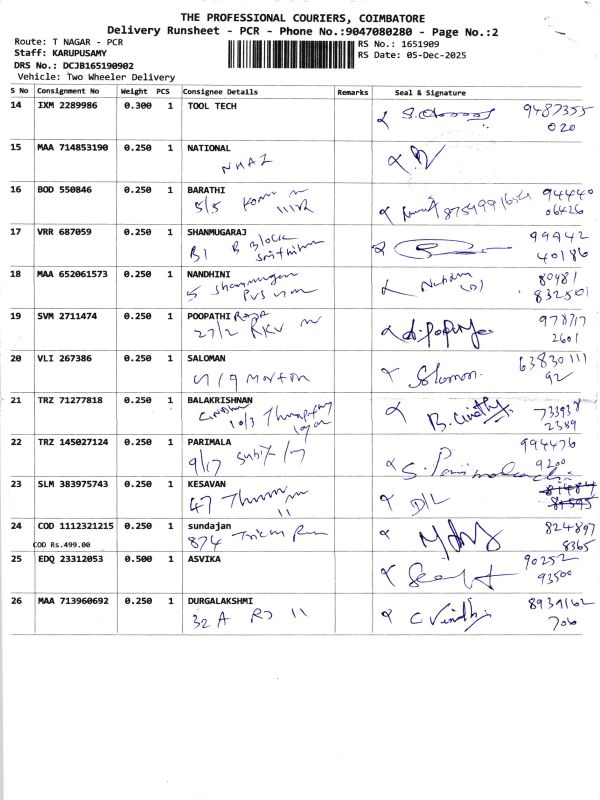 THE PROFESSIONAL COURIERS, COIMBATORE
Delivery Runsheet - PCR - Phone No.:9047080280 - Page No.:2
Route: T NAGAR - PCR
Staff: KARUPUSAMY
DRS No.: DCJB165190902
Vehicle: Two Wheeler Delivery
RS No.: 1651909
RS Date: 05-Dec-2025
S No Consignment No Weight PCS Consignee Details Remarks Seal & Signature
14 IXM 2289986 0.300 1 TOOL TECH 9487355
020
15 MAA 714853190 0.250 1 NATIONAL
NHAI
16 BOD 550846 0.250 1 BARATHI 94440
5/5 06426
17 VRR 687059 0.250 1 SHANMUGARAJ 99942
B1 B Block 40186
18 MAA 652061573 0.250 1 NANDHINI 80481
5 Shanmugan 832501
19 SVM 2711474 0.250 1 POOPATHI Raja 978717
27/2 RKV 2601
20 VLI 267386 0.250 1 SALOMAN 63830111
Solomon. 92
21 TRZ 71277818 0.250 1 BALAKRISHNAN 733938
10/3 2389
22 TRZ 145027124 0.250 1 PARIMALA 994476
9/17 9200
23 SLM 383975743 0.250 1 KESAVAN
47 D/L
24 COD 1112321215 0.250 1 sundajan 824897
COD Rs.499.00 874 8365
25 EDQ 23312053 0.500 1 ASVIKA 90252
93500
26 MAA 713960692 0.250 1 DURGALAKSHMI 8939162
32 A 706